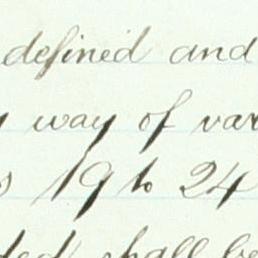 defined and
way of var
19 to 24
shall be